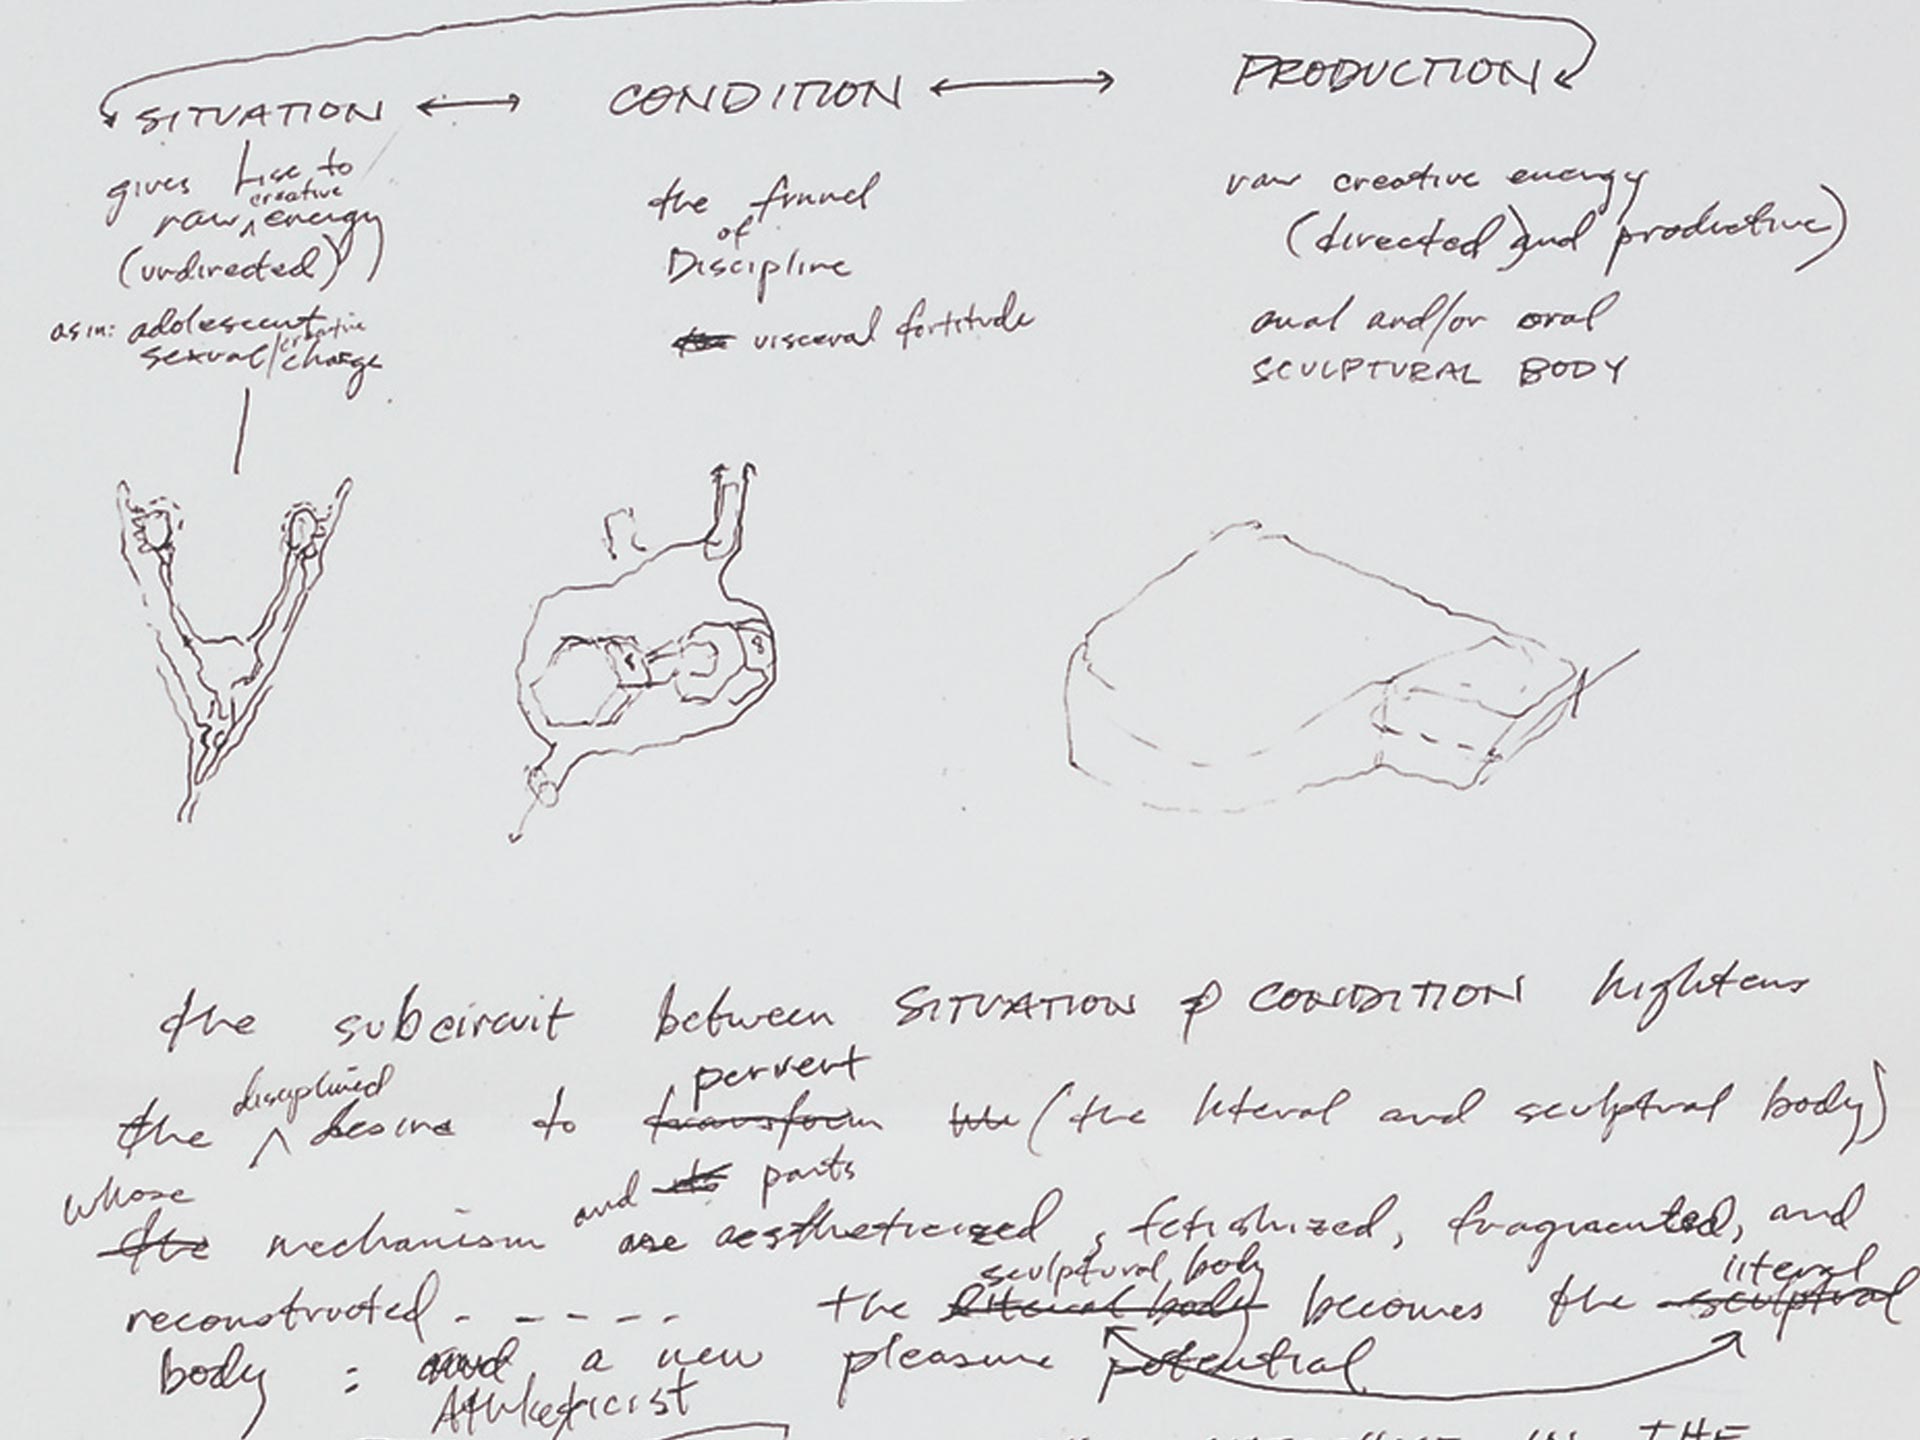 SITUATION CONDITION PRODUCTION
gives rise to
creative
raw energy
(undirected)
as in: adolescent
creative
sexual/charge
the funnel
of
Discipline
the visceral fortitude
raw creative energy
(directed) and productive)
anal and/or oral
SCULPTURAL BODY
the subcircuit between SITUATION & CONDITION hightens
disciplined pervert
the desire to transform the (the literal and sculptural body)
whose and its parts
the mechanism are aestheticized, fetishized, fragmented, and
sculptural body literal
reconstructed - - - - - the literal body becomes the sculptural
body : and a new pleasure potential
IN THE